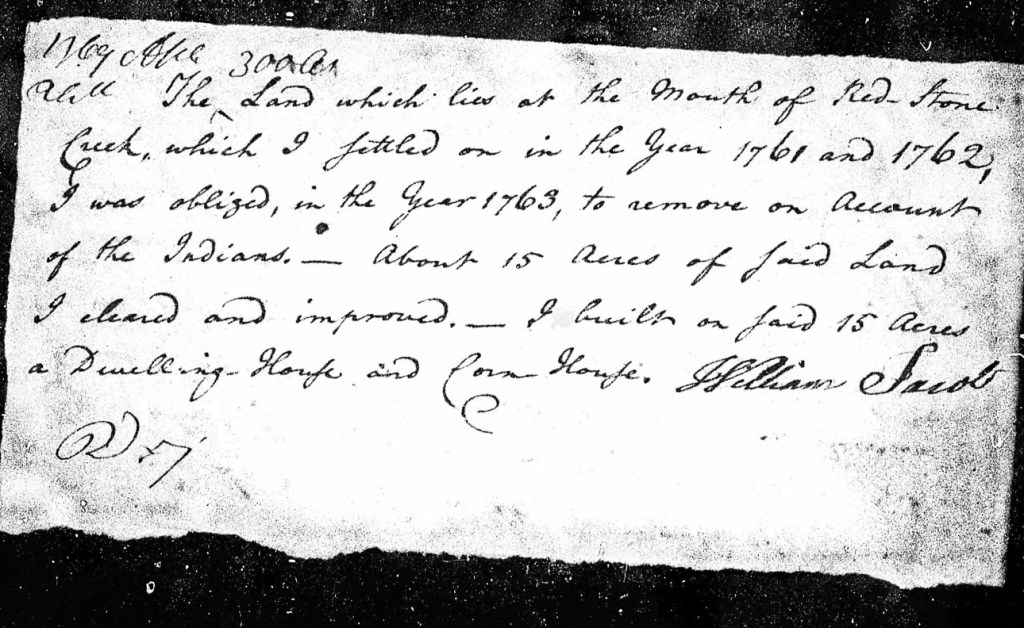 1769 Apl 300 Acrs
The Land which lies at the Mouth of Red-Stone
Creek, which I settled on in the Year 1761 and 1762,
I was oblized, in the Year 1763, to remove on Account
of the Indians. — About 15 Acres of said Land
I cleared and improved. — I built on said 15 Acres
a Dwelling House and Corn House. William Jacob